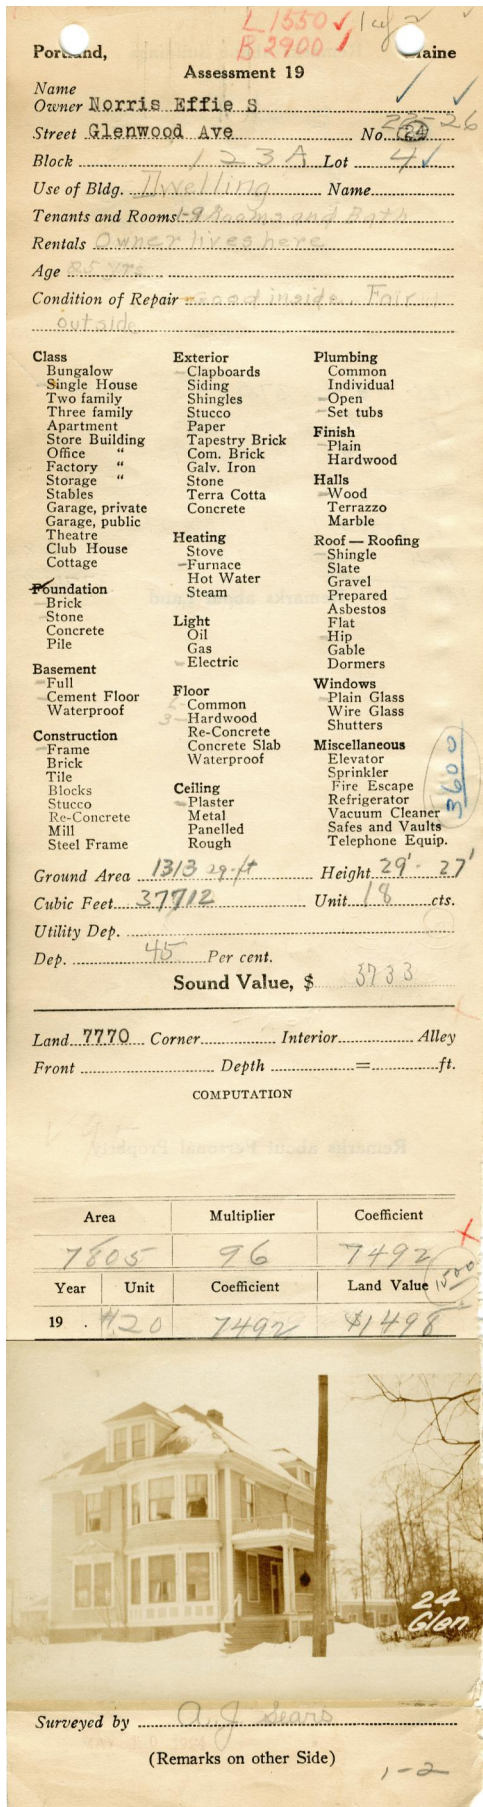 L 1550 ✓ 1 of 2
B 2900 ✓
Portland, Maine
Assessment 19
Name
Owner Norris Effie S
22-26
Street Glenwood Ave No. 24
Block 123A Lot 4
Use of Bldg. Dwelling Name
Tenants and Rooms 1-9 Rooms and Bath
Rentals Owner lives here
Age 25 yrs
Condition of Repair Good inside. Fair
outside
Class
Bungalow
Single House
Two family
Three family
Apartment
Store Building
Office "
Factory "
Storage "
Stables
Garage, private
Garage, public
Theatre
Club House
Cottage
Foundation
Brick
Stone
Concrete
Pile
Basement
Full
Cement Floor
Waterproof
Construction
Frame
Brick
Tile
Blocks
Stucco
Re-Concrete
Mill
Steel Frame
Exterior
Clapboards
Siding
Shingles
Stucco
Paper
Tapestry Brick
Com. Brick
Galv. Iron
Stone
Terra Cotta
Concrete
Heating
Stove
Furnace
Hot Water
Steam
Light
Oil
Gas
Electric
Floor
Common
3 Hardwood
Re-Concrete
Concrete Slab
Waterproof
Ceiling
Plaster
Metal
Panelled
Rough
Plumbing
Common
Individual
Open
Set tubs
Finish
Plain
Hardwood
Halls
Wood
Terrazzo
Marble
Roof — Roofing
Shingle
Slate
Gravel
Prepared
Asbestos
Flat
Hip
Gable
Dormers
Windows
Plain Glass
Wire Glass
Shutters
Miscellaneous
Elevator
Sprinkler
Fire Escape
Refrigerator
Vacuum Cleaner
Safes and Vaults
Telephone Equip.
3600
Ground Area 1313 sq. ft Height 29' - 27'
Cubic Feet 37712 Unit 18 cts.
Utility Dep.
Dep. 45 Per cent.
Sound Value, $ 3733
Land 7770 Corner Interior Alley
Front Depth = ft.
COMPUTATION
Area Multiplier Coefficient
7805 96 7492
Year Unit Coefficient Land Value 1500
19 . #.20 7492 $1498
24
Glen
Surveyed by A. J. Sears
(Remarks on other Side)
1-2